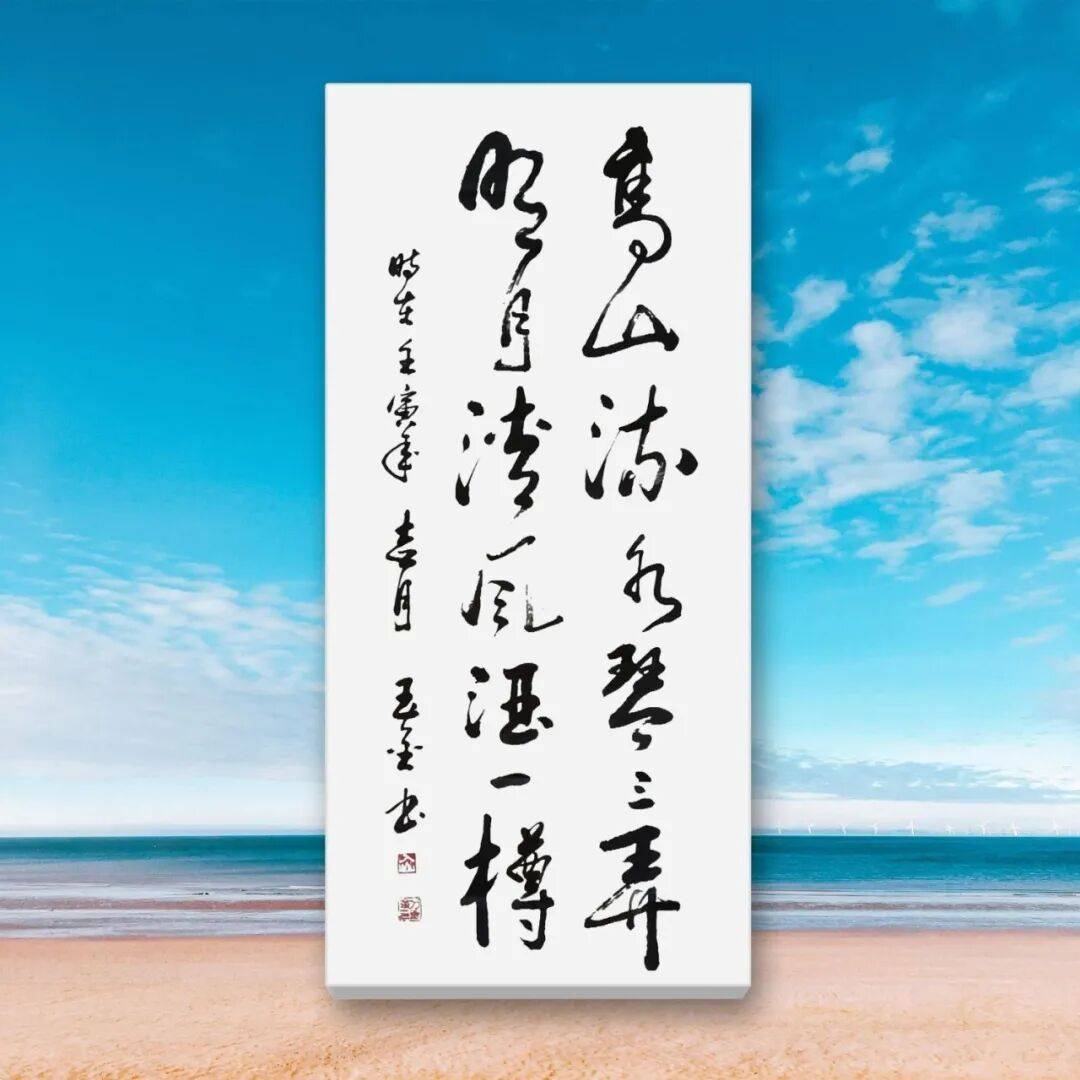 高山流水琴三弄
明月清风酒一樽
时在壬寅年吉月 玉金书